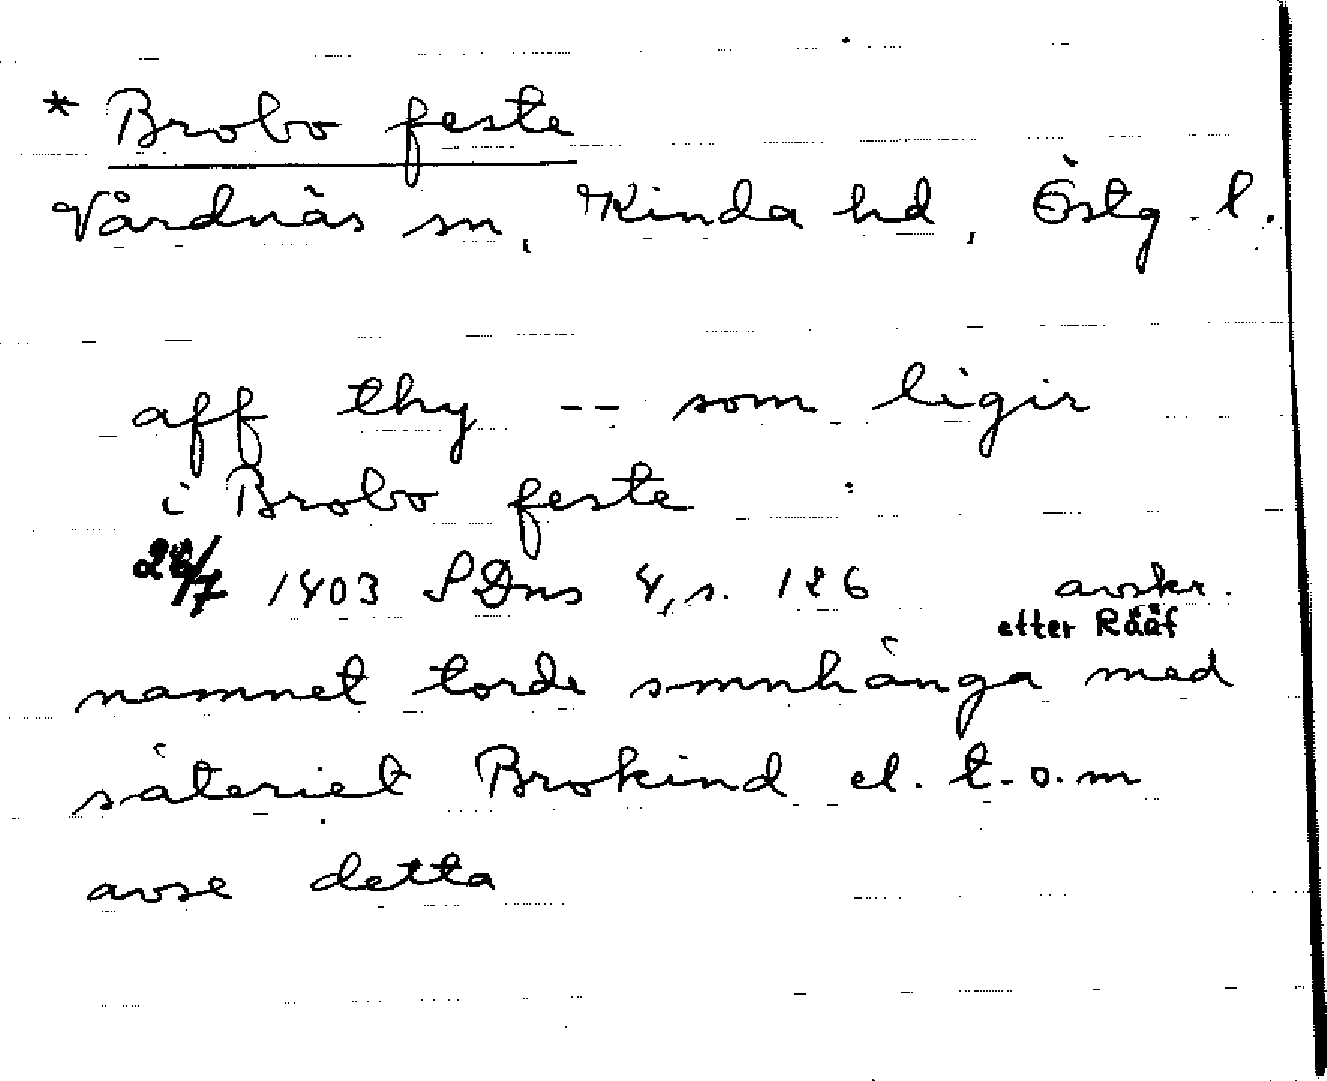 * Brobo feste
Vårdnäs sn, Kinda hd, Östg. l.
aff thy -- som ligir
i Brobo feste
26/7 1403 SDns 4, s. 126 avskr.
etter Rääf
namnet torde smnhänga med
säteriet Brokind el. t.o.m
avse detta